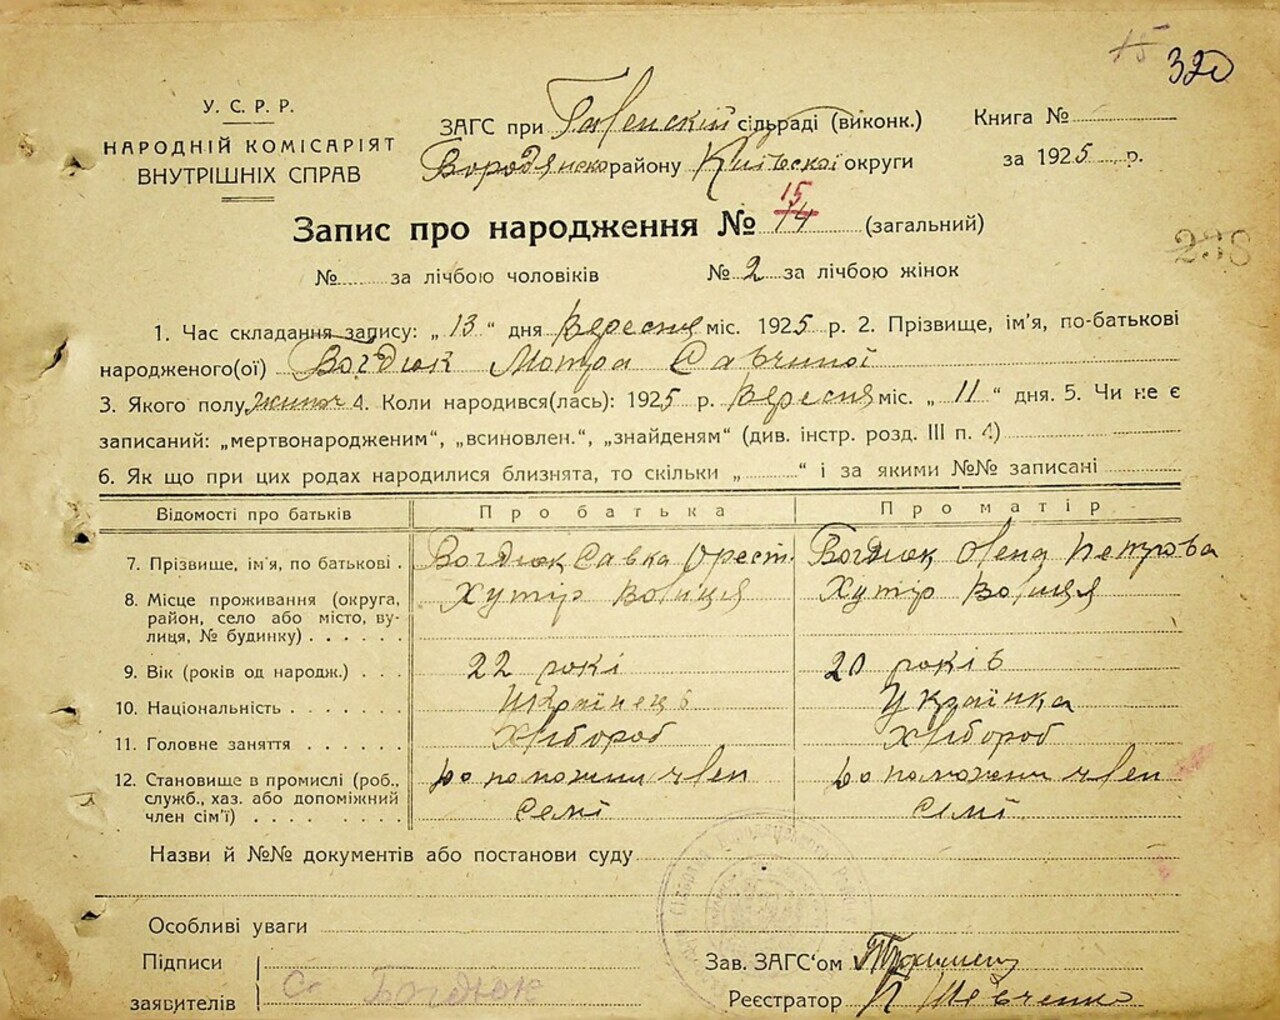 15 320
У. С. Р. Р.
НАРОДНІЙ КОМІСАРІЯТ
ВНУТРІШНІХ СПРАВ
ЗАГС при сільраді (виконк.)
Бородянско району Київської округи
Книга №
за 1925 р.
Запис про народження № 15 14 (загальний)
238
№ за лічбою чоловіків № 2 за лічбою жінок
1. Час складання запису: „ 13 “ дня Вересня міс. 1925 р. 2. Прізвище, ім'я, по-батькові
народженого(ої) Богдюк Мотра Савчиної
3. Якого полу жіноч 4. Коли народився(лась): 1925 р. Вересня міс. „ 11 “ дня. 5. Чи не є
записаний: „мертвонародженим“, „всиновлен.“, „знайденям“ (див. інстр. розд. III п. 4)
6. Як що при цих родах народилися близнята, то скільки „ “ і за якими №№ записані
Відомості про батьків Про батька Про матір
7. Прізвище, ім'я, по батькові . Богдюк Савка Орест. Богдюк Олена Петрова
8. Місце проживання (округа, Хутір Волиця Хутір Волиця
район, село або місто, ву-
лиця, № будинку) . . . . . .
9. Вік (років од народж.) . . . 22 рокі 20 років
10. Національність . . . . . . . Українець Українка
11. Головне заняття . . . . . . Хлібороб Хлібороб
12. Становище в промислі (роб., до поможни член до поможни член
служб., хаз. або допоміжний семі семі
член сім'ї) . . . . . . . . .
Назви й №№ документів або постанови суду
Особливі уваги
Підписи
заявителів С. Богдюк
Зав. ЗАГС'ом
Реєстратор П Шевченко